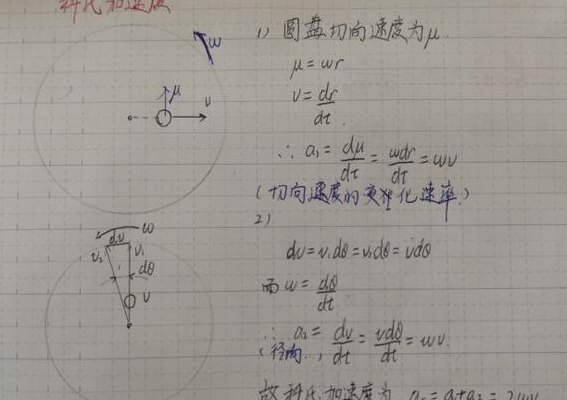 科氏加速度
ω
μ
v
1) 圆盘切向速度为μ.
μ = ωr
v = dr/dt.
∴ a₁ = dμ/dt = ωdr/dt = ωv
(切向速度的变化速率)
2)
ω
dv
v₂
v₁
dθ
v
dv = v₁dθ = v₂dθ = vdθ
而 ω = dθ/dt
∴ a₂ = dv/dt = vdθ/dt = ωv.
(径向)
故科氏加速度为 a_c = a₁+a₂ = 2ωv